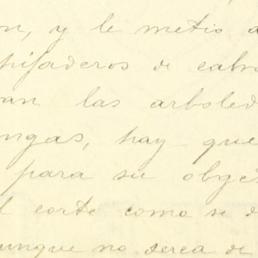 n, y le metio a
hijaderos de cabr
an las arboled
ngas, hay que
para su obge
l corte como se d
unque no serca de